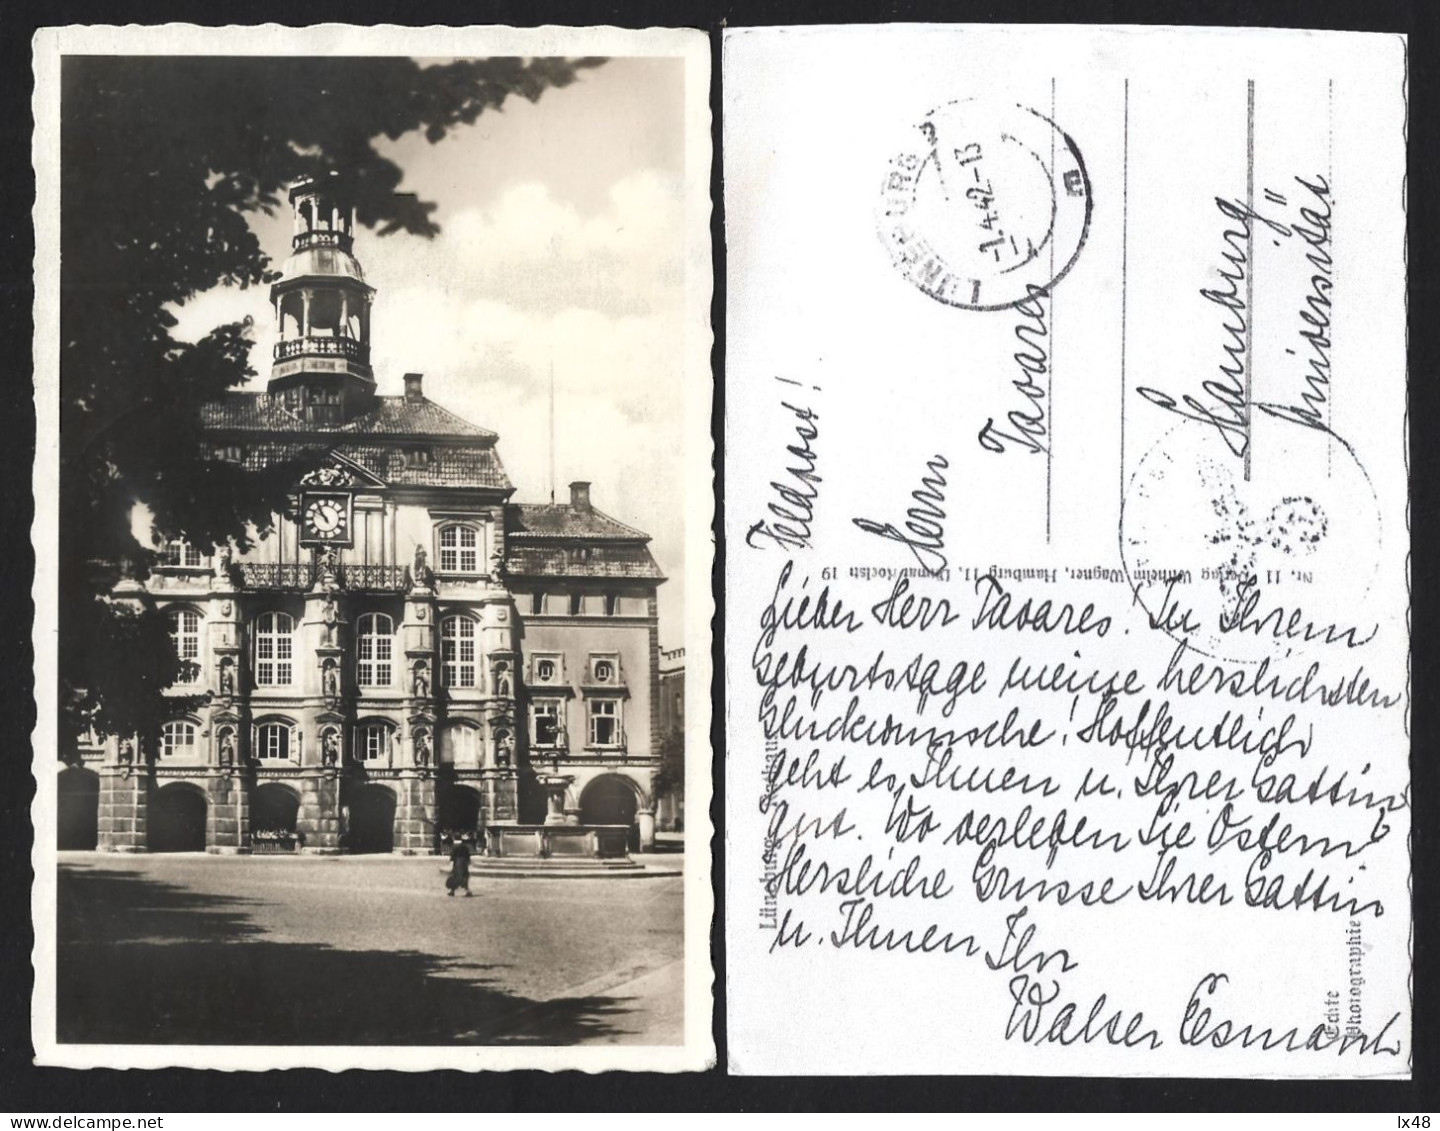 Feldpost!
LÜNEBURG 2
-1.4.42-13
E
Herrn
Tavares
Hamburg
Universität
Nr. 11 Verlag Wilhelm Wagner, Hamburg 11, 19
Lüneburg. Rathaus
Echte
Photographie
Lieber Herr Tavares! Zu Ihrem
Geburtstage meine herzlichsten
Glückwünsche! Hoffentlich
geht es Ihnen u. Ihrer Gattin
gut. Wo verleben Sie Ostern?
Herzliche Grüsse Ihrer Gattin
u. Ihnen Ihr
Walter Essmann
lx48